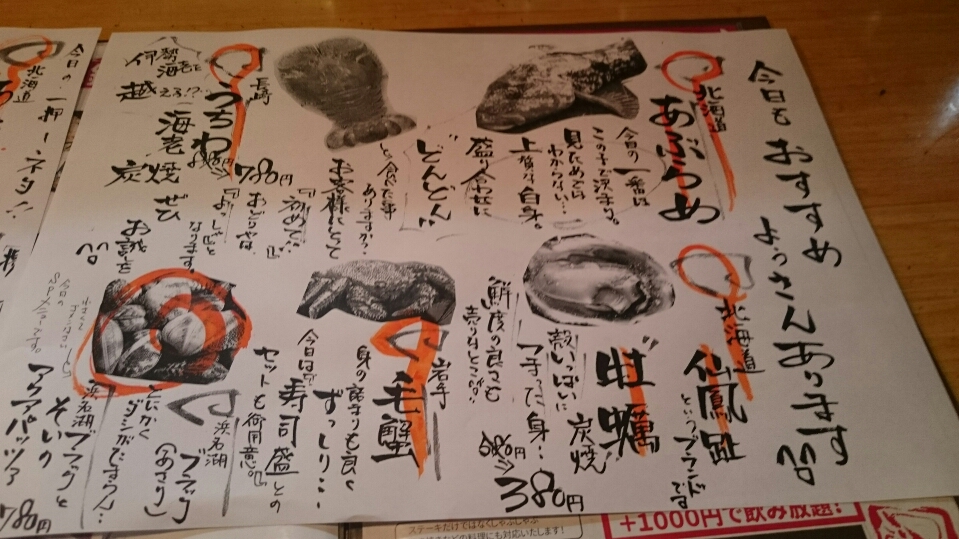 今日も おすすめ たくさんあります
北海道
あぶらめ
今日の一番は
この子で決まり。
見ためでは
わからない…
上質な白身。
盛合わせに
どんどん!!
と、食べた事
ありますか?
お客様にとって
『初めて…』
長崎
うちわ
780円
伊勢海老
海老
炭焼
ぜひ
なります。
北海道
仙鳳趾
というブランドです
牡蠣
炭焼
380円
殻いっぱいに
鮮度の良さも
岩手
毛蟹
身の詰まりも良く
ずっしり…
今日は、寿司盛との
セットも御用意。
浜名湖
ブラック
(あさり)
とにかく
ダシがでますっ…
浜名湖ブラックと
そいの
アクアパッツァ
780円
北海道
今日の一押しネタ!!
ステーキだけではなくしゃぶしゃぶ
などの料理にも対応いたします!
+1000円で飲み放題!